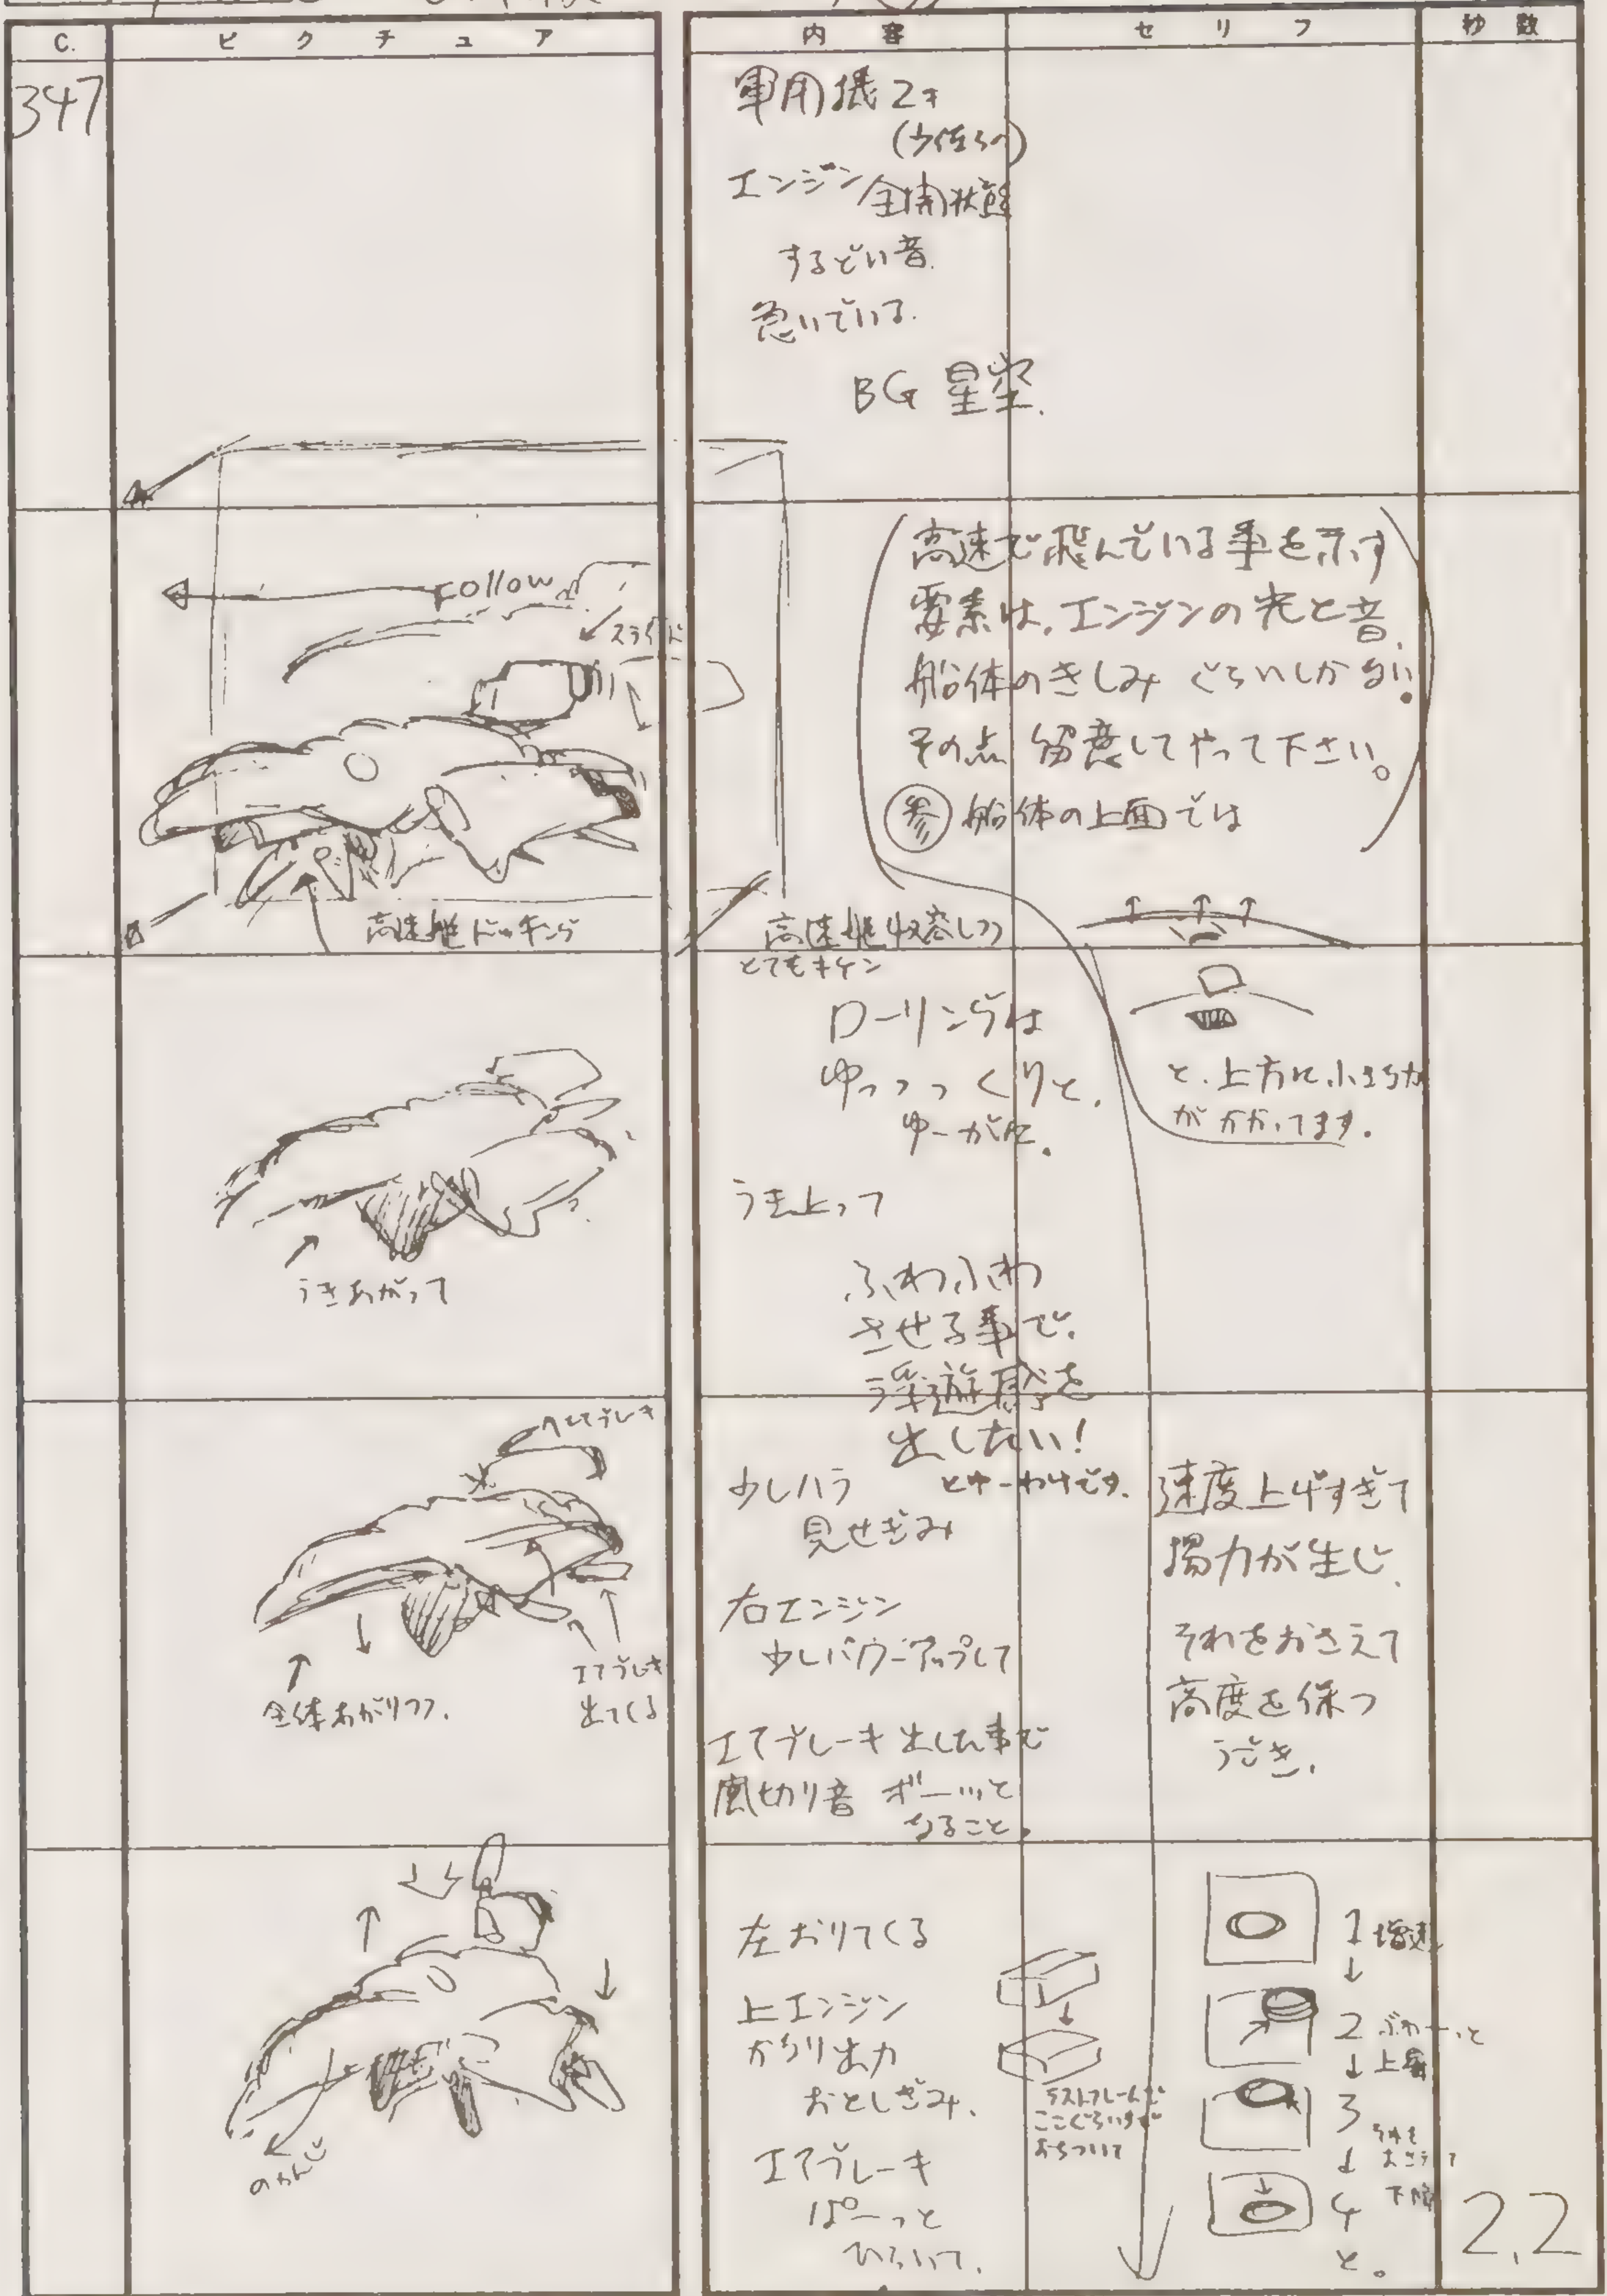 C.
ピクチュア
内容
セリフ
秒数
347
軍用機
エンジン全開状態
するどい音.
急いでいる.
BG 星空.
Follow
スライド
高速艇ドッキング
高速で飛んでいる事を示す
要素は、エンジンの光と音、
船体のきしみ ぐらいしかない。
その点 留意してやって下さい。
参 船体の上面では
と、上方に小さな力
がかかってます.
高速艇収容しつつ
とてもキケン
ローリングは
ゆっっっくりと、
ゆーがに.
うき上って
うきあがって
ふわふわ
させる事で、
浮遊感を
出したい!
とゆーわけです.
エアブレーキ
全体あがりつつ.
エアブレーキ
出てくる
少しハラ
見せぎみ
右エンジン
少しパワーアップして
エアブレーキ出した事で
風切り音 ボーッと
なること.
速度上げすぎて
揚力が生じ、
それをおさえて
高度を保つ
うごき.
のかんじ
左おりてくる
上エンジン
かなり出力
おとしぎみ、
エアブレーキ
ぱーっと
ひらいて.
ラストフレームで
ここぐらいまで
おちついて
1 増速
↓
2 ぶわーっと
↓ 上昇
3 それを
↓ おさえて
4 下降
と。
2.2